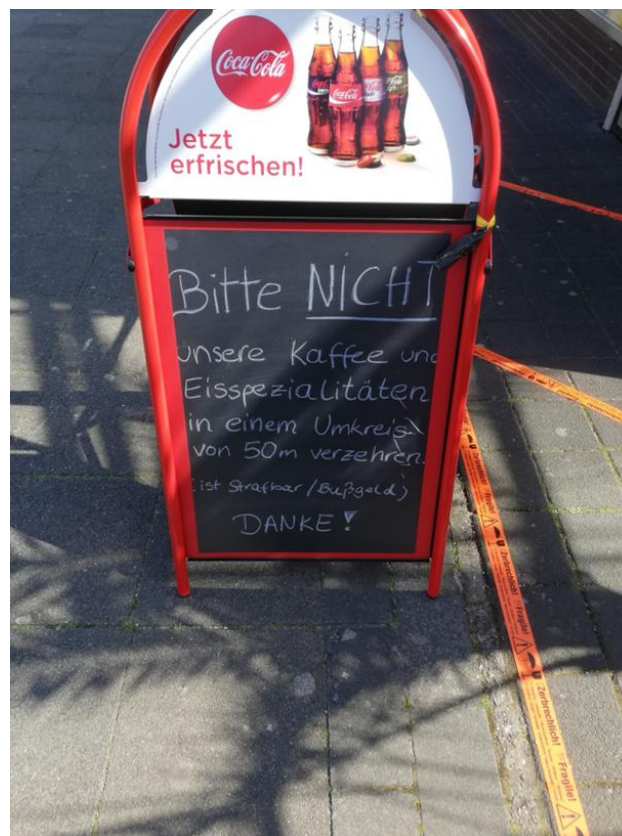 Coca-Cola
Jetzt
erfrischen!
Bitte NICHT
unsere Kaffee und
Eisspezialitäten
in einem Umkreis
von 50m verzehren.
(ist Strafbar / Bußgeld)
DANKE!
Zerbrechlich! Fragile!
Zerbrechlich! Fragile!